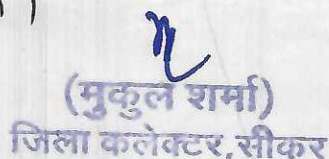 (मुकुल शर्मा)
जिला कलेक्टर,सीकर